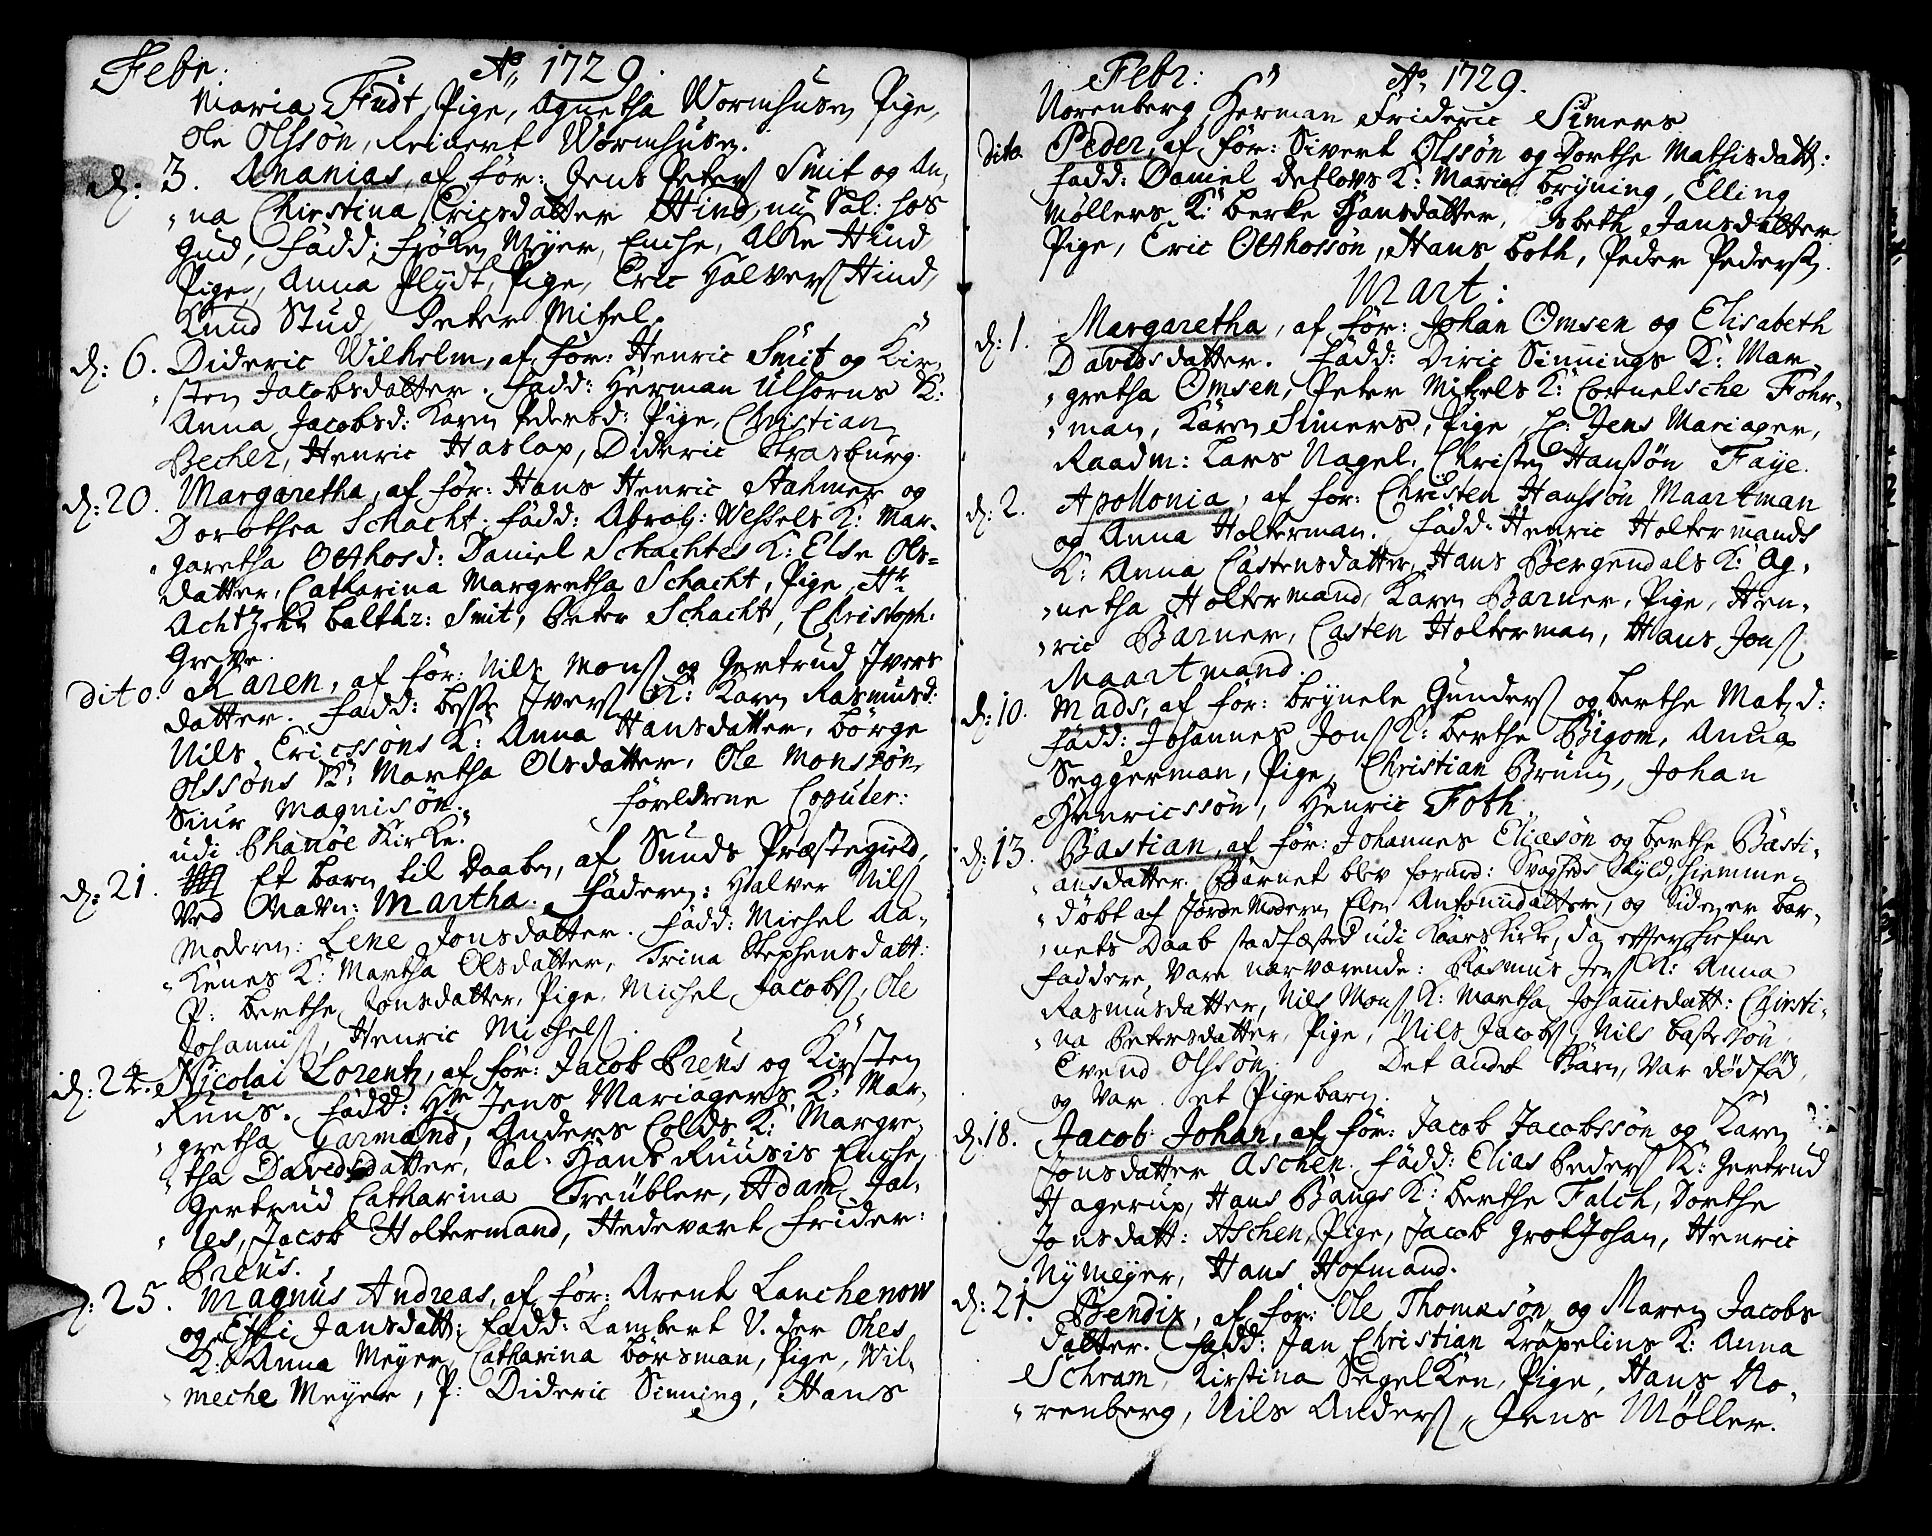 Febr: Aº 1729.
Maria Fùdt, Pige, Agnetha Wormhusen Pige,
Ole Olssøn, Reinert Wormhusen.
d: 3. Ananias, af för: Jens Peters Smit og An,
na Christina Ericsdatter Hind, nu Sal: hos
Gud, Fadd: Meyer, Enche, Alke Hind
Pige, Anna Plydt, Pige, Eric Halvers Hind,
Knud Stud, Peter Mitzel.
d: 6. Dideric Wilhelm, af för: Henric Smit og Kir,
sten Jacobsdatter. Fadd: Herman Ulhorns K:
Anna Jacobsd: Karen Pedersd: Pige, Christian
Becher, Henric Haslop, Dideric Strasburg.
d: 20. Margaretha, af för: Hans Henric Stahmer og
Dorothea Schacht. Fadd: Abrah: Wessels K: Mar,
garetha Otthosd: Daniel Schachtes K: Else Ols=
datter, Catharina Margretha Schacht, Pige, Hr.
Achtzehn Balthz: Smit, Peter Schacht, Christoph:
Greve.
dito. Karen, af för: Nils Mons og Gertrud Ivers
datter. Fadd: Ivers K: Karen Rasmusd:
Nils Ericssøns K: Anna Hansdatter, Børge
Olssøns K: Martha Olsdatter, Ole Monssøn,
Siur Magnisøn. Forelderne Copuler:
udi Phanøe Kirke.
d: 21. Et barn til Daaben, af Sunds Præstegield,
Ved Navn: Martha. Faderen: Halver Nils
Moderen: Lene Jonsdatter. Fadd: Michel Aa,
Kenes K: Martha Olsdatter, Trina Stephensdatt:
P: Berthe Jonsdatter, Pige, Michel Jacobs, Ole
Johannis, Henric Michels.
d: 24. Nicolai Lorentz, af för: Jacob Preus og Kirsten
Ruus. Fadd: Hr Jens Mariagers K: Mar,
gretha Garmand, Anders Colds K: Margre,
tha Davidsdatter, Sal: Hans Ruusis Enche,
Gertrud Catharina Treubler, Adam Jal,
les, Jacob Holtermand, Hedevart Frider:
Preus.
d: 25. Magnus Andreas, af för: Arent Lanchenow
og Effi Jansdatt: Fadd: Lambert V. der Ohes
K: Anna Meyer, Catharina Börsman, Pige, Wil,
meche Meyer, P: Dideric Sinning, Hans
Febr: Aº 1729.
Norenberg, Herman Frideric Simers
dito. Peder, af för: Sivert Olssøn og Dorthe Mathisdatt:
Fadd: Daniel Detlovs K: Maria Bryning, Elling
Møllers K: Berte Hansdatter, Jansdatter
Pige, Eric Otthossøn, Hans Both, Peder Peders.
Mart:
d: 1. Margaretha, af för: Johan Omsen og Elisabeth
Davidsdatter. Fadd: Diric Sinnings K: Mar,
gretha Omsen, Peter Mitzels K: Cornelsche Fohr,
man, Karen Simers, Pige, H: Jens Mariager,
Raadm: Lars Nagel, Christen Hanssøn Faye.
d: 2. Apollonia, af för: Christen Hanssøn Maartman
og Anna Holterman. Fadd: Henric Holtermands
K: Anna Castensdatter, Hans Bergendals K: Ag,
netha Holtermand, Karen Barner, Pige, Hen,
ric Barner, Casten Holterman, Hans Jons
Maartmand.
d: 10. Mads, af för: Brynele Gunders og Berthe Matzd:
Fadd: Johannes Jons K: Berthe Bigom, Anna
Seggerman, Pige, Christian Bruun, Johan
Henricssøn, Henric Foth.
d: 13. Bastian, af för: Johannes Eliæsøn og Berthe Basti,
ansdatter. Barnet blev formed: Svagheds Skyld, hiemme
døbt af Jordemodern Elen Antonidatter, og siden er Bar,
nets Daab stadfæsted udi Kaars Kirke, da efterskrefne
Faddere, Vare nærværende: Rasmus Jens K: Anna
Rasmusdatter, Nils Mons K: Martha Johannisdatt: Christi,
na Petersdatter, Pige, Nils Jacobs, Nils Bastessøn,
Evend Olssøn. Det andet Barn, Var dødfød,
og Var et Pigebarn.
d: 18. Jacob Johan, af för: Jacob Jacobssøn og Karen
Jonsdatter Aschen. Fadd: Elias Peders K: Gertrud
Hagerup, Hans Bangs K: Berthe Falch, Dorthe
Jonsdatt: Aschen, Pige, Jacob Grotjohan, Henric
Nymeyer, Hans Hofmand.
d: 21. Bendix, af för: Ole Thomæsøn og Maren Jacobs
datter. Fadd: Jan Christian Kröpelins K: Anna
Schram, Kirstina Segelken, Pige, Hans No,
renberg, Nils Anders, Jens Møller.